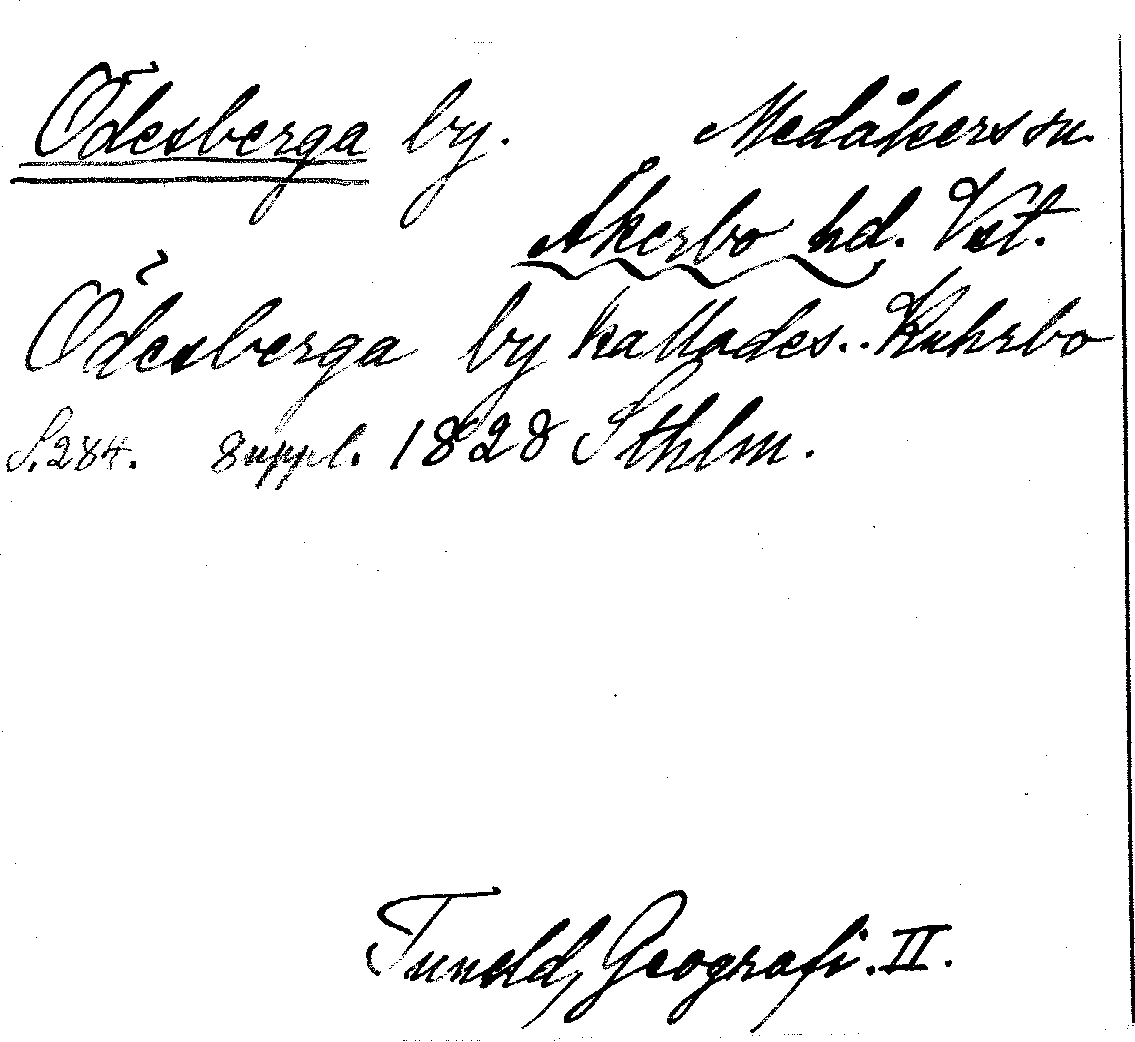 Ödesberga by. Medåkers sn.
Åkerbo hd. Vst.
Ödesberga by kallades.. Kuhrbo
S. 284. Suppl. 1828 Sthlm.
Tuneld, Geografi. II.